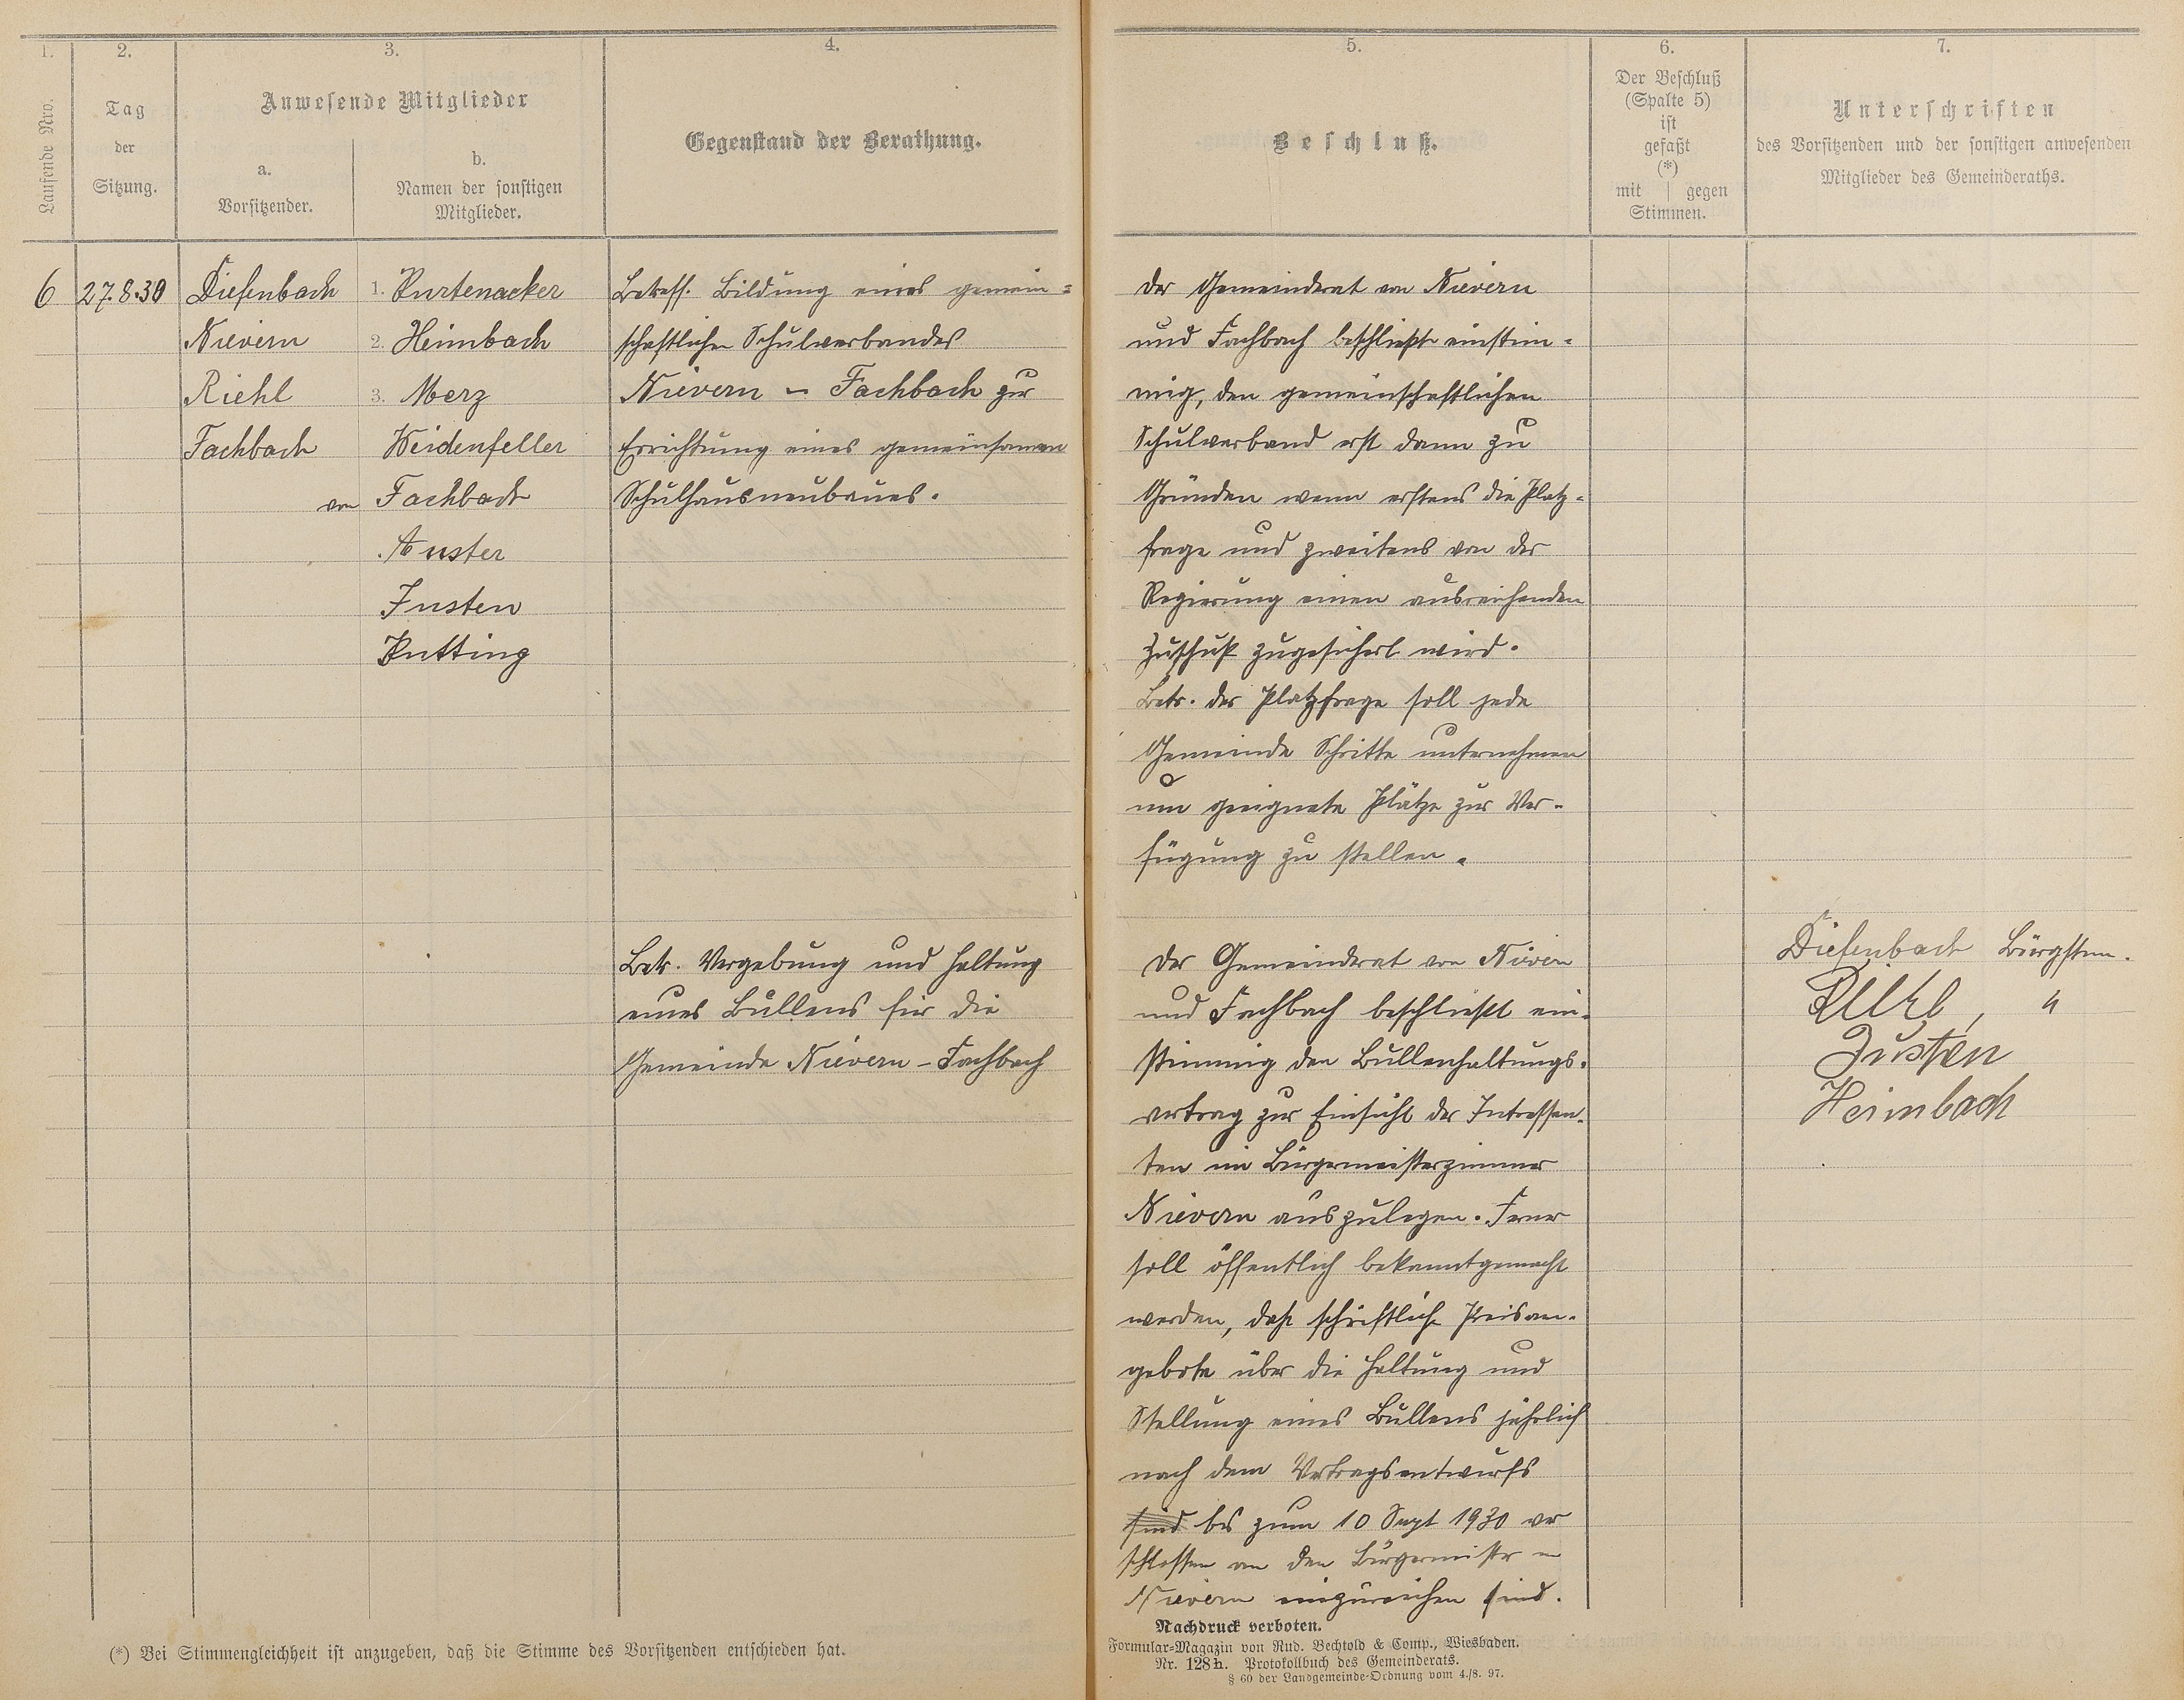 1.
2.
3.
4.
5.
6.
7.
Laufende Nro.
Tag
der
Sitzung.
Anwesende Mitglieder
a.
Vorsitzender.
b.
Namen der sonstigen
Mitglieder.
Gegenstand der Berathung.
Beschluß.
Der Beschluß
(Spalte 5)
ist
gefaßt
(*)
mit | gegen
Stimmen.
Unterschriften
des Vorsitzenden und der sonstigen anwesenden
Mitglieder des Gemeinderaths.
6
27.8.30
Diefenbach
Nievern
Riehl
Fachbach
1. Kurtenacker
2. Heimbach
3. Merz
Weidenfeller
von Fachbach
Auster
Justen
Kutting
Betreff. Bildung eines gemein=
schaftlichen Schulverbandes
Nievern - Fachbach zur
Errichtung eines gemeinsamen
Schulhausneubaues.
Der Gemeinderat von Nievern
und Fachbach beschließt einstim-
mig, den gemeinschaftlichen
Schulverband erst dann zu
Gründen wenn erstens die Platz-
frage und zweitens von der
Regierung einen ausreichenden
Zuschuß zugesichert wird.
Betr. der Platzfrage soll jede
Gemeinde Schritte unternehmen
um geeignete Plätze zur Ver-
fügung zu stellen.
Betr. Vergebung und Haltung
eines Bullens für die
Gemeinde Nievern - Fachbach
Der Gemeinderat von Nievern
und Fachbach beschließt ein-
stimmig den Bullenhaltungs-
vertrag zur Einsicht der Intressen-
ten im Bürgermeisterzimmer
Nievern auszulegen. Ferner
soll öffentlich bekanntgemacht
werden, daß schriftliche Preisan-
gebote über die Haltung und
Stellung eines Bullens jährlich
nach dem Vertragsentwurfs
sind bis zum 10 Sept 1930 ver
schlossen an den Bürgermeister in
Nievern einzureichen sind.
Diefenbach Bürgstm.
Riehl, "
Justen
Heimbach
(*) Bei Stimmengleichheit ist anzugeben, daß die Stimme des Vorsitzenden entschieden hat.
Nachdruck verboten.
Formular-Magazin von Rud. Bechtold & Comp., Wiesbaden.
Nr. 128h. Protokollbuch des Gemeinderats.
§ 60 der Landgemeinde-Ordnung vom 4./8. 97.